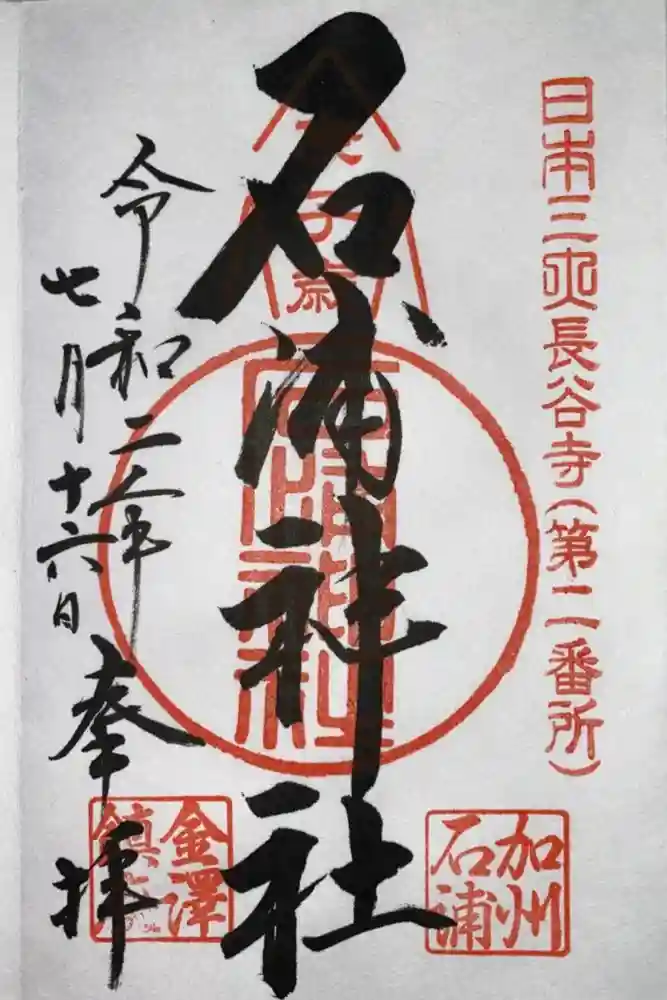 日本三大長谷寺(第二番所)
加州
石浦
石浦神社
石浦神社
令和二年
七月十六日
奉拝
金澤
鎮